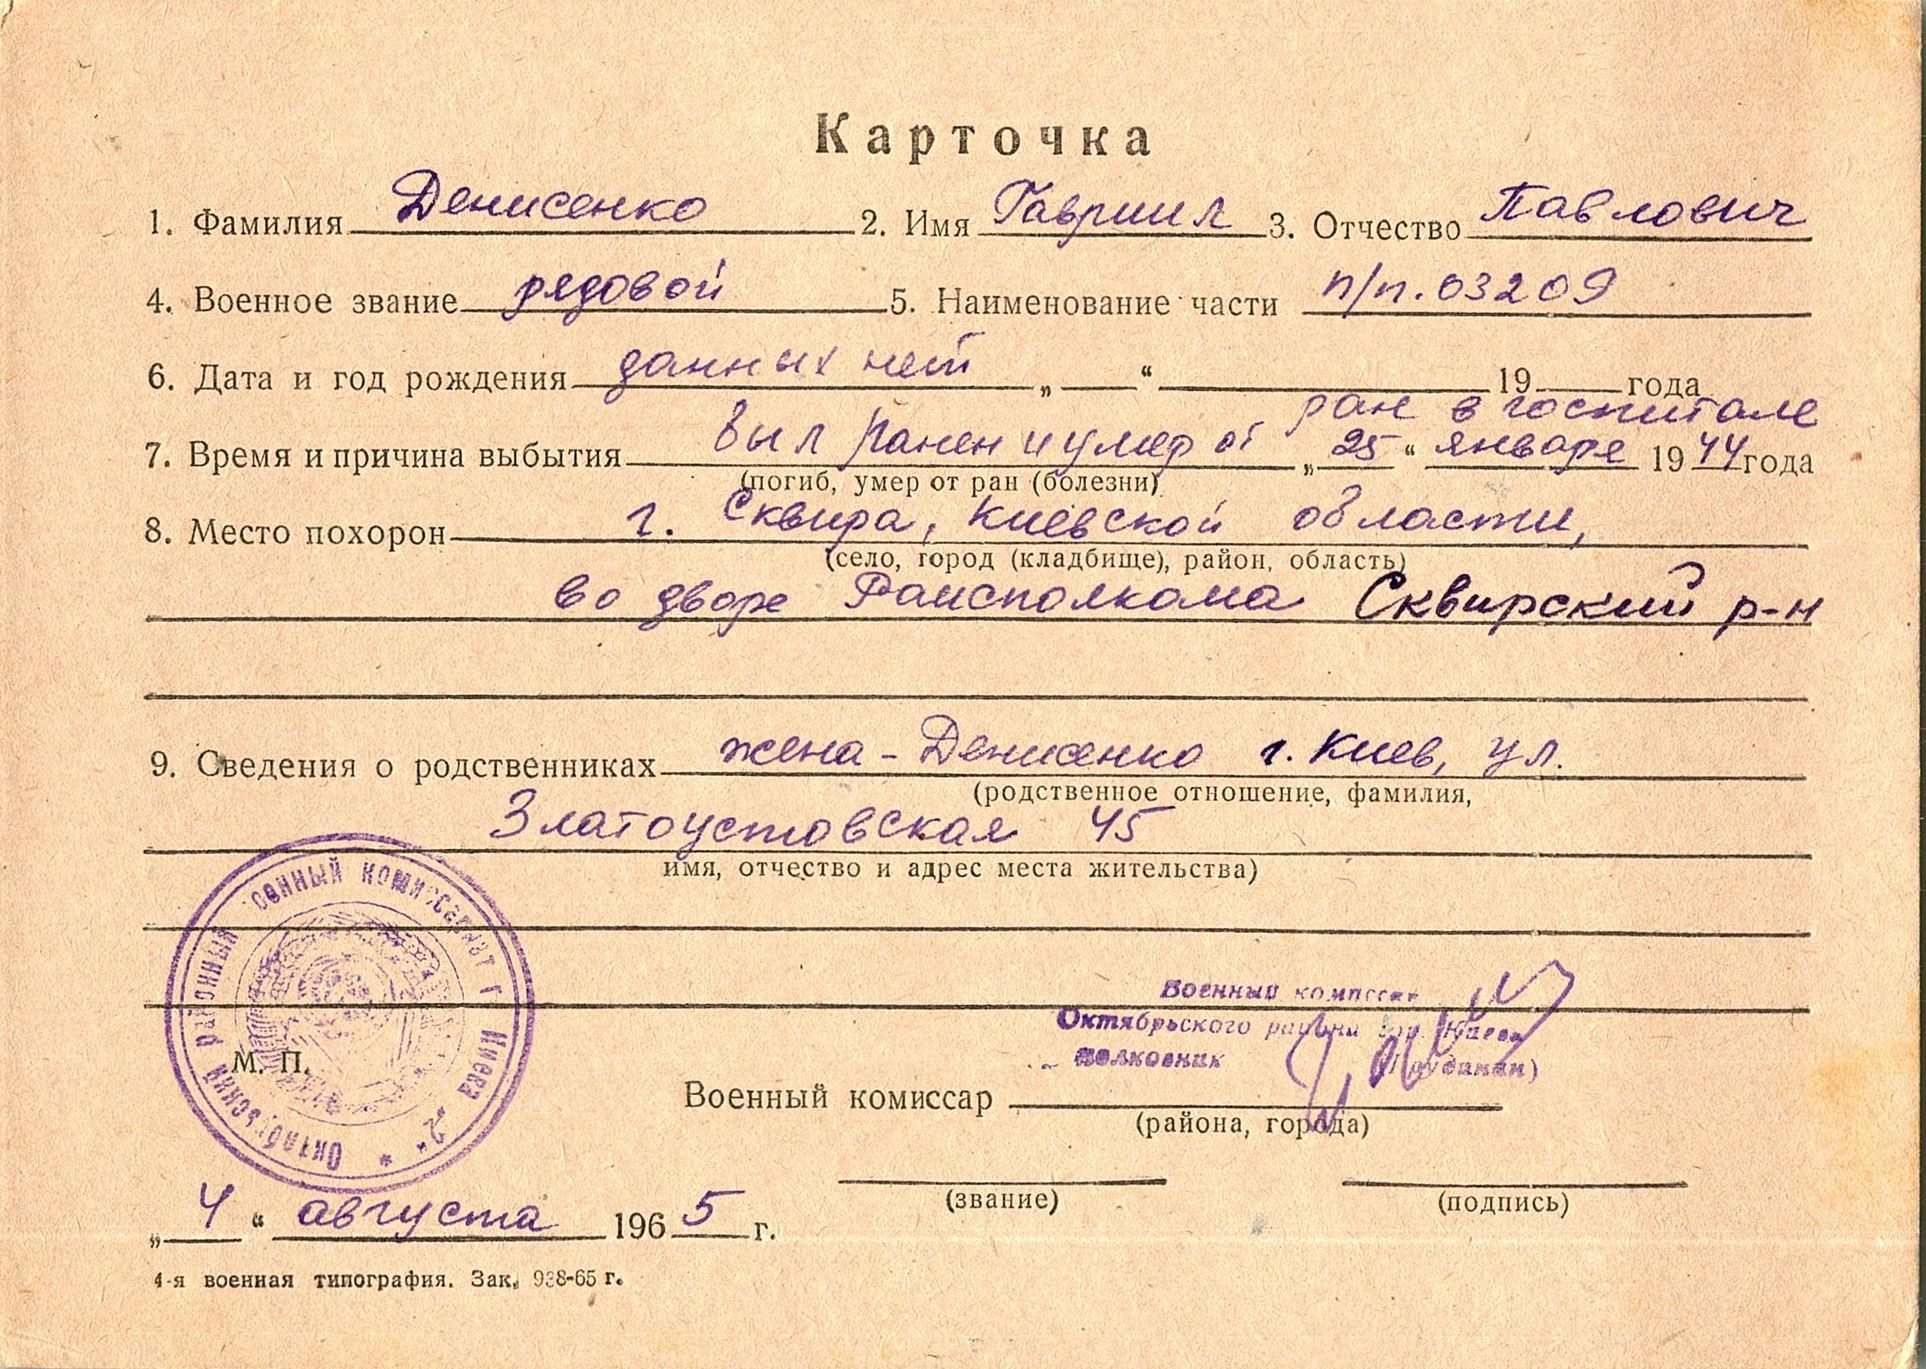 Карточка
1. Фамилия Денисенко 2. Имя Гавриил 3. Отчество Павлович
4. Военное звание рядовой 5. Наименование части п/п. 03209
6. Дата и год рождения данных нет „ “ 19 года
ран в госпитале
7. Время и причина выбытия был ранен и умер от „25“ января 1944 года
(погиб, умер от ран (болезни)
8. Место похорон г. Сквира, Киевской области,
(село, город (кладбище), район, область)
во дворе Раисполкома Сквирский р-н
9. Сведения о родственниках жена - Денисенко г. Киев, ул.
(родственное отношение, фамилия,
Златоустовская 45
имя, отчество и адрес места жительства)
Октябрьский районный военный комиссариат г. Киева 2
Военный комиссар
Октябрьского района гор. Киева
полковник
М. П.
Военный комиссар
(района, города)
(звание) (подпись)
„4“ августа 1965 г.
4-я военная типография. Зак. 938-65 г.